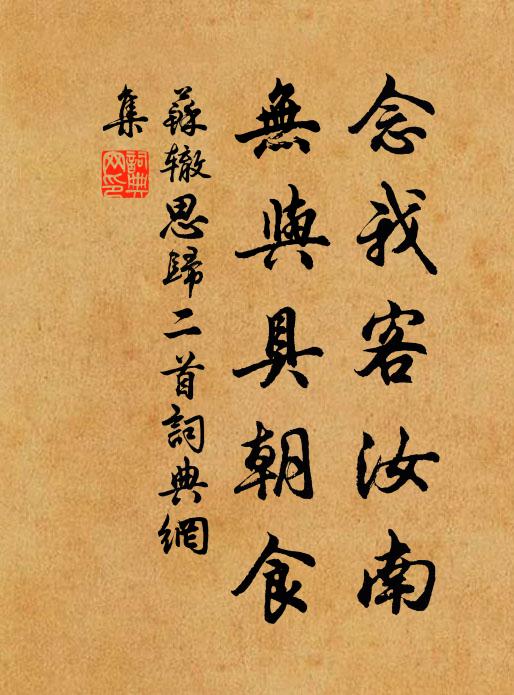 念我客汝南
無與具朝食
蘇轍思歸二首詞典網
集
詞典
网印